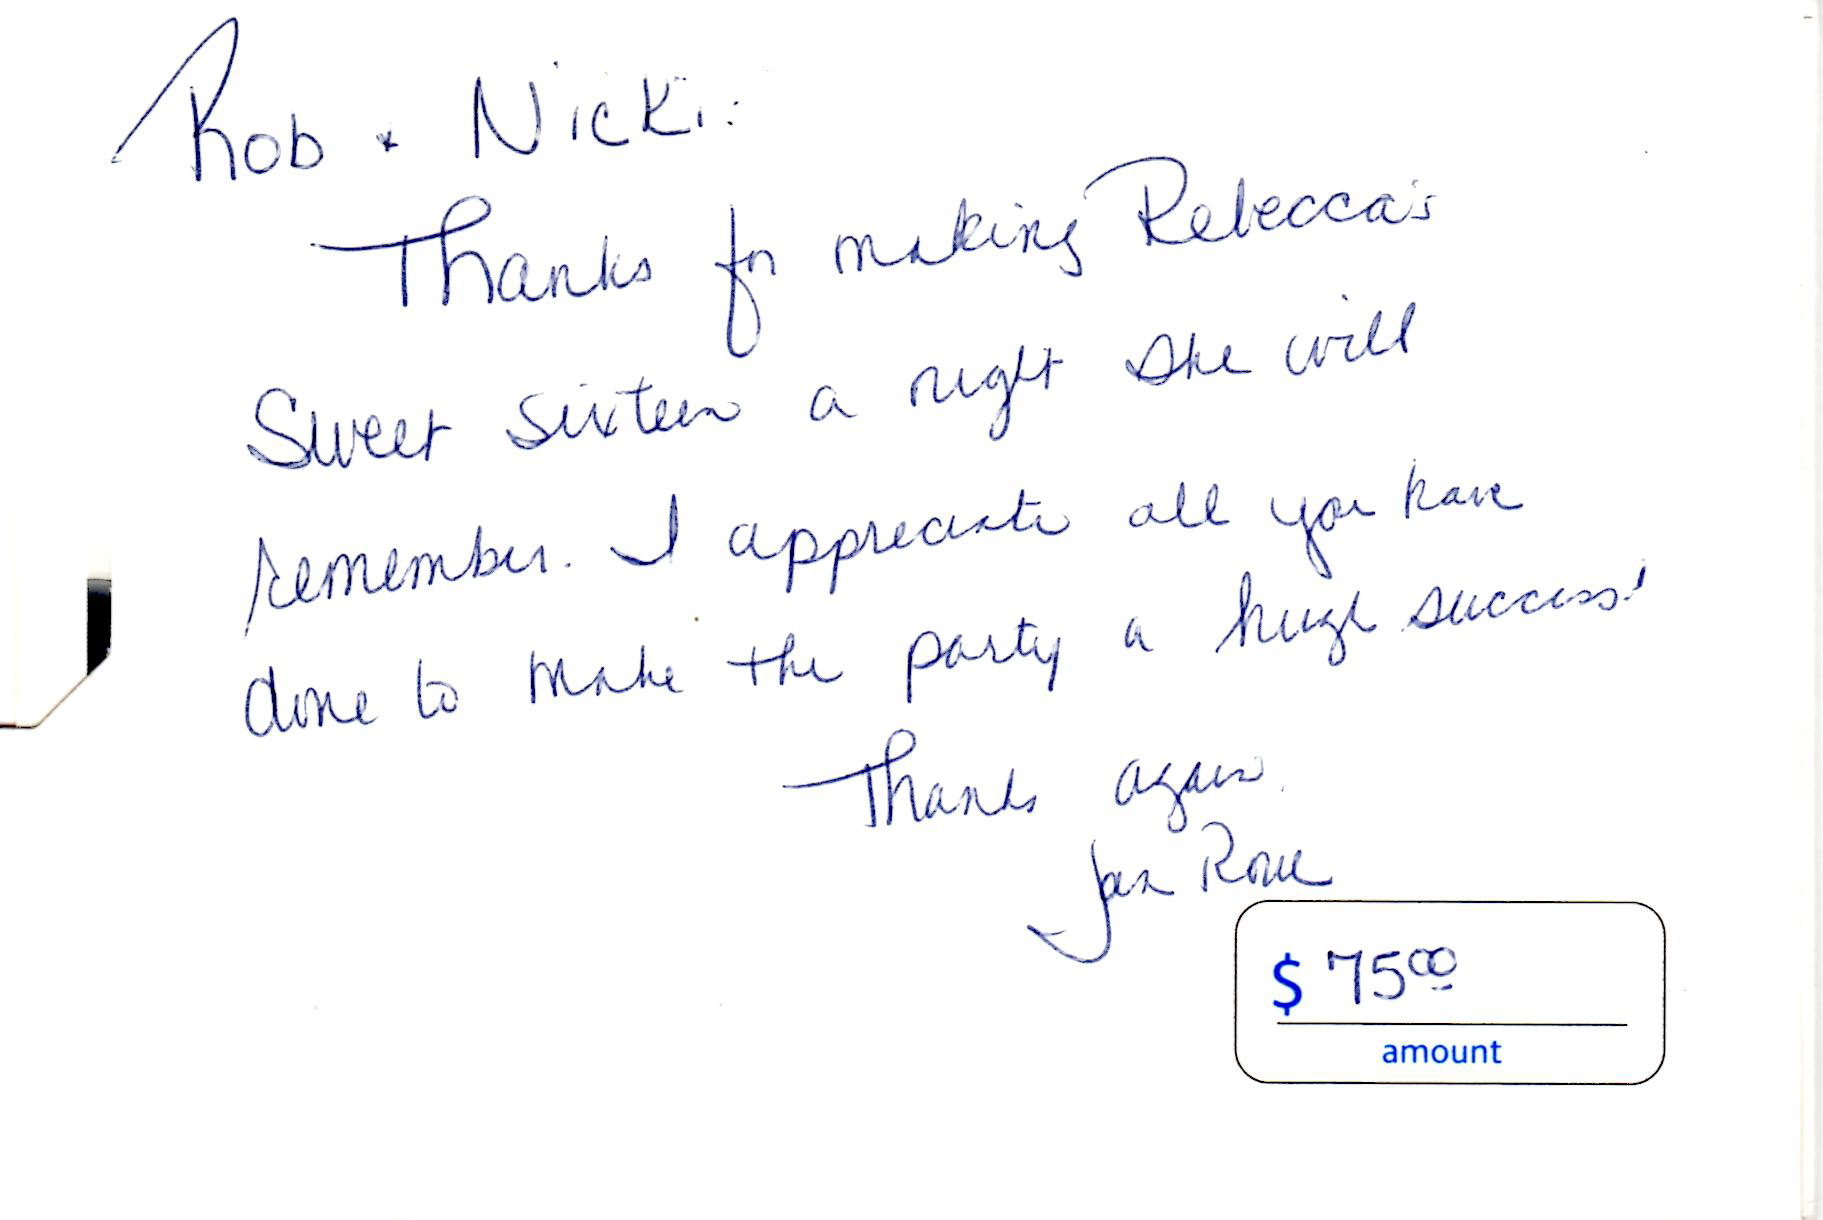 Rob + Nicki:
Thanks for making Rebecca's
Sweet sixteen a night she will
remember. I appreciate all you have
done to make the party a huge success!
Thanks again.
Jan Rowe
$ 75.00
amount